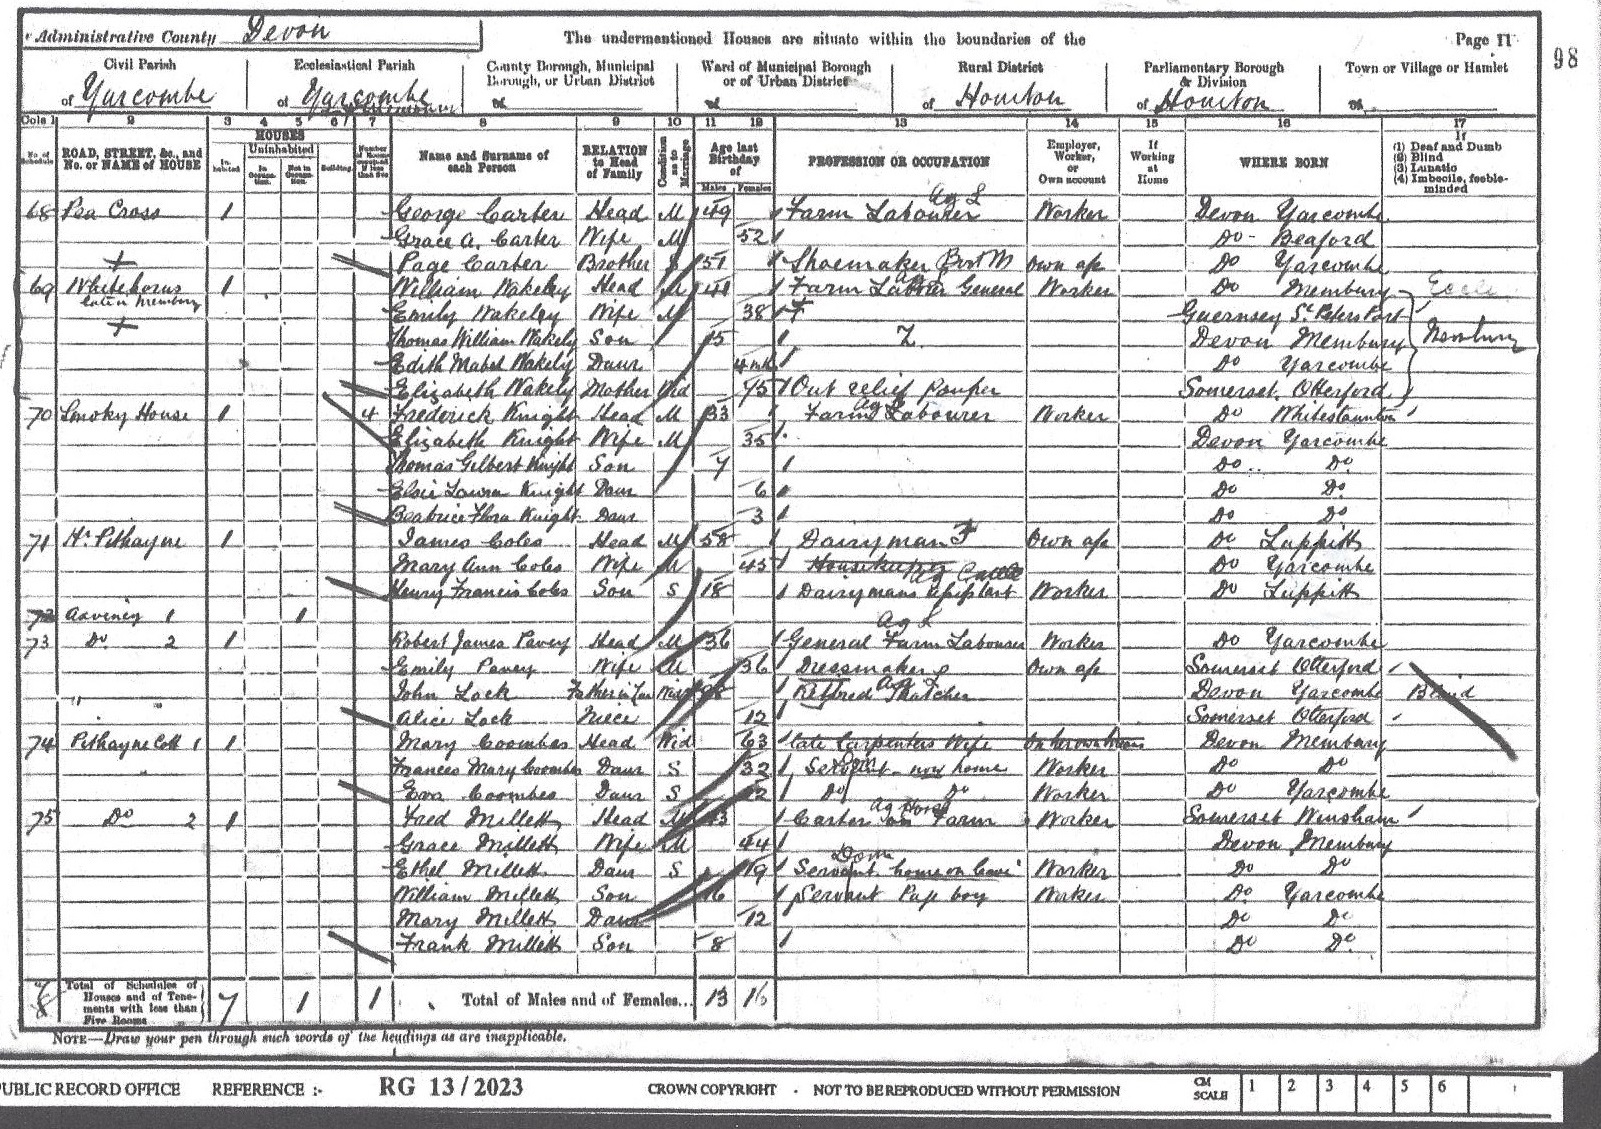 Administrative County Devon
The undermentioned Houses are situate within the boundaries of the
Page 11
98
Civil Parish
of Yarcombe
Ecclesiastical Parish
of Yarcombe
County Borough, Municipal Borough, or Urban District
of
Ward of Municipal Borough or of Urban District
of
Rural District
of Honiton
Parliamentary Borough & Division
of Honiton
Town or Village or Hamlet
of
Cols 1 2 3 4 5 6 7 8 9 10 11 12 13 14 15 16 17
No. of Schedule
ROAD, STREET, &c., and No. or NAME of HOUSE
HOUSES
Inhabited
Uninhabited
In Occupation.
Not in Occupation.
Building
Number of Rooms occupied if less than five
Name and Surname of each Person
RELATION to Head of Family
Condition as to Marriage
Age last Birthday of
Males Females
PROFESSION OR OCCUPATION
Employer, Worker, or Own account
If Working at Home
WHERE BORN
If
(1) Deaf and Dumb
(2) Blind
(3) Lunatic
(4) Imbecile, feeble-minded
68 Pea Cross 1 George Carter Head M 49 Farm Labourer Ag L Worker Devon Yarcombe
Grace A. Carter Wife M 52 Do Beaford
Page Carter Brother S 51 Shoemaker Boot M Own a/c Do Yarcombe
69 Whitehorns 1 William Wakeley Head M 41 Farm Labour General Worker Do Membury Eccle
late in Membury Emily Wakeley Wife M 38 Guernsey St. Peters Port
Thomas William Wakely Son 15 Devon Membury Membury
Edith Mabel Wakely Daur 4 mth Do Yarcombe
Elizabeth Wakely Mother Wid 75 Out relief Pauper Somerset Otterford
70 Smoky House 1 4 Frederick Knight Head M 33 Farm Labourer Ag L Worker Do Whitestaunton
Elizabeth Knight Wife M 35 Devon Yarcombe
Thomas Gilbert Knight Son 7 Do Do
Elsie Laura Knight Daur 6 Do Do
Beatrice Flora Knight Daur 3 Do Do
71 Hr. Pithayne 1 James Coles Head M 58 Dairyman F Own a/c Do Luppitt
Mary Ann Coles Wife M 45 Housekeeper Do Yarcombe
Henry Francis Coles Son S 18 Dairymans assistant Ag Cattle Worker Do Luppitt
72 1 1
73 Do 2 1 Robert James Pavey Head M 36 General Farm Labourer Ag L Worker Do Yarcombe
Emily Pavey Wife M 36 Dressmaker Own a/c Somerset Otterford
John Lock Father in Law Widr Retired Thatcher Devon Yarcombe Blind
Alice Lock Niece 12 Somerset Otterford
74 Pithayne Cott 1 1 Mary Coombes Head Wid 63 late Carpenters Wife Devon Membury
Frances Mary Coombes Daur S 32 Servant Dom now home Worker Do Do
Eva Coombes Daur S 22 Do Do Worker Do Yarcombe
75 Do 2 1 Fred Millett Head M 43 Carter on Farm Ag Horse Worker Somerset Winsham
Grace Millett Wife M 44 Devon Membury
Ethel Millett Daur S 19 Servant Dom home on leave Worker Do Do
William Millett Son 16 Servant Page boy Worker Do Yarcombe
Mary Millett Daur 12 Do Do
Frank Millett Son 8 Do Do
8 Total of Schedules of Houses and of Tenements with less than Five Rooms 7 1 1 Total of Males and of Females... 13 16
NOTE—Draw your pen through such words of the headings as are inapplicable.
PUBLIC RECORD OFFICE REFERENCE :- RG 13/2023 CROWN COPYRIGHT - NOT TO BE REPRODUCED WITHOUT PERMISSION
CM SCALE 1 2 3 4 5 6